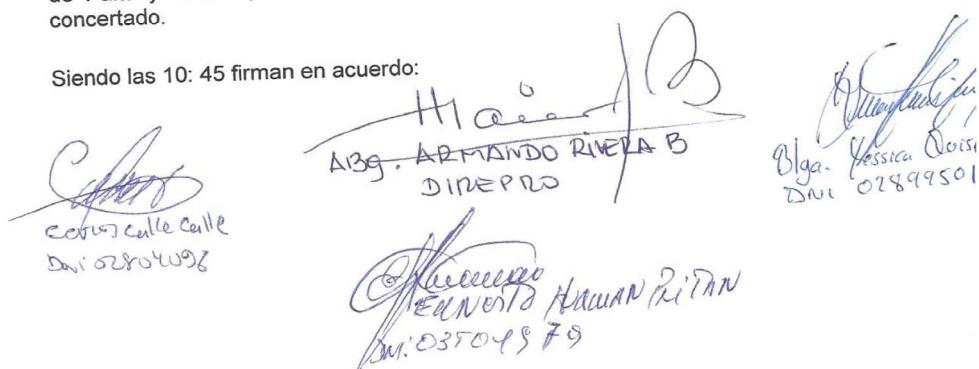 concertado.
Siendo las 10: 45 firman en acuerdo:
Abg. ARMANDO RIVERA B
DIREPRO
Blga. Yessica
DNI 02899501
Calle Calle
DNI 02804096
ERNESTO HUAMAN
DNI: 03504979